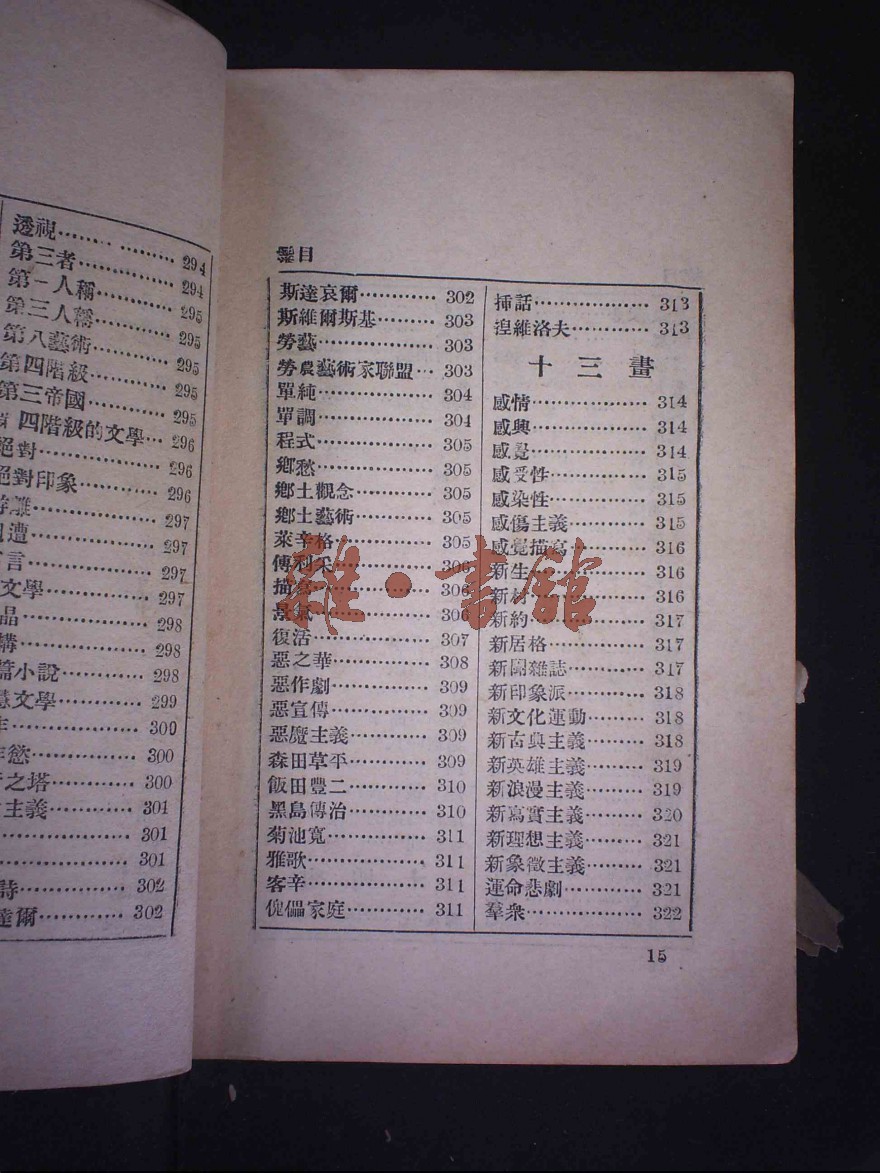 透視……… 294
第三者……… 294
第一人稱……… 295
第三人稱……… 295
第八藝術……… 295
第四階級……… 295
第三帝國……… 295
四階級的文學… 296
絕對……… 296
絕對印象……… 296
297
遭……… 297
言……… 297
文學……… 297
品……… 298
構……… 298
篇小說……… 298
文學……… 299
300
慾……… 300
之塔……… 300
主義……… 301
301
301
詩……… 302
達爾……… 302
目
斯達哀爾………… 302
斯維爾斯基……… 303
勞藝……………… 303
勞農藝術家聯盟… 303
單純……………… 304
單調……………… 304
程式……………… 305
鄉愁……………… 305
鄉土觀念………… 305
鄉土藝術………… 305
萊辛格…………… 305
傅利采…………… 306
描寫……………… 306
景氣……………… 306
復活……………… 307
惡之華…………… 308
惡作劇…………… 309
惡宣傳…………… 309
惡魔主義………… 309
森田草平………… 309
飯田豐二………… 310
黑島傳治………… 310
菊池寬…………… 311
雅歌……………… 311
客辛……………… 311
傀儡家庭………… 311
插話……………… 313
湼維洛夫………… 313
十三畫
感情……………… 314
感興……………… 314
感覺……………… 314
感受性…………… 315
感染性…………… 315
感傷主義………… 315
感覺描寫………… 316
新生……………… 316
新村……………… 316
新約……………… 317
新居格…………… 317
新聞雜誌………… 317
新印象派………… 318
新文化運動……… 318
新古典主義……… 318
新英雄主義……… 319
新浪漫主義……… 319
新寫實主義……… 320
新理想主義……… 321
新象徵主義……… 321
運命悲劇………… 321
羣衆……………… 322
15
雜·書館